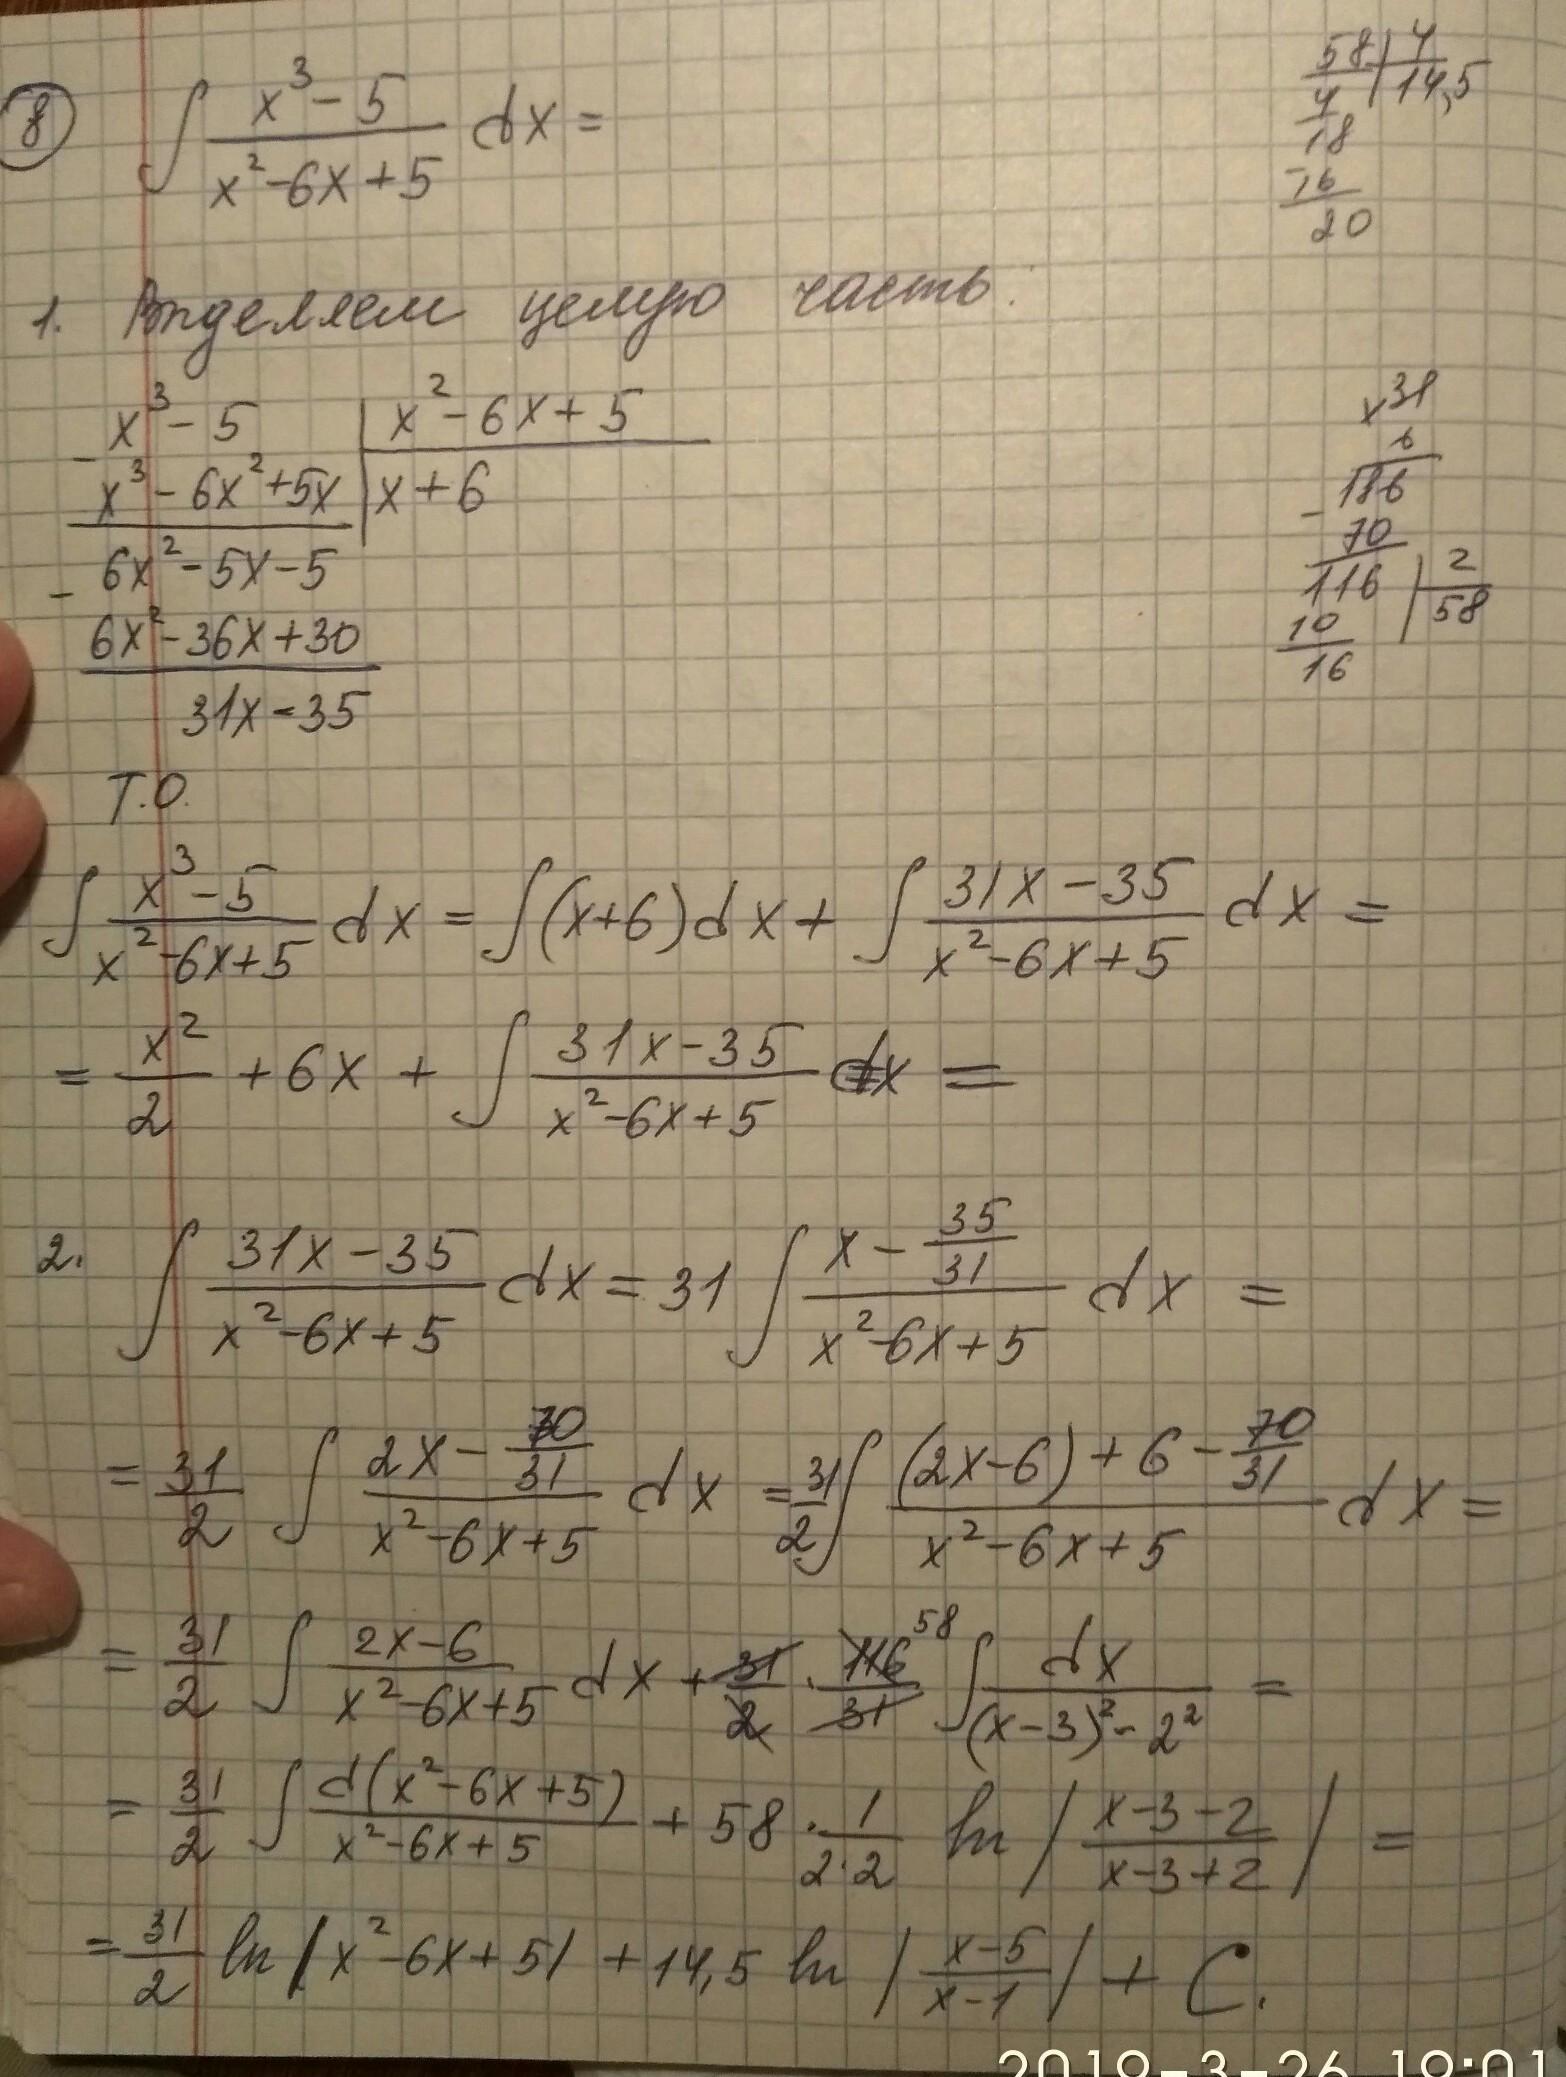 8 ∫ (x³ - 5)/(x² - 6x + 5) dx =
58 | 4
4 | 14,5
18
16
20
1. Выделяем целую часть.
- x³ - 5 | x² - 6x + 5
x³ - 6x² + 5x | x + 6
- 6x² - 5x - 5
6x² - 36x + 30
31x - 35
x 31
6
- 186
70
116 | 2
10 | 58
16
Т.О.
∫ (x³ - 5)/(x² - 6x + 5) dx = ∫ (x + 6) dx + ∫ (31x - 35)/(x² - 6x + 5) dx =
= x²/2 + 6x + ∫ (31x - 35)/(x² - 6x + 5) dx =
2. ∫ (31x - 35)/(x² - 6x + 5) dx = 31 ∫ (x - 35/31)/(x² - 6x + 5) dx =
= 31/2 ∫ (2x - 70/31)/(x² - 6x + 5) dx = 31/2 ∫ ((2x - 6) + 6 - 70/31)/(x² - 6x + 5) dx =
= 31/2 ∫ (2x - 6)/(x² - 6x + 5) dx + 31/2 · 116/31 58 ∫ dx/((x - 3)² - 2²) =
= 31/2 ∫ d(x² - 6x + 5)/(x² - 6x + 5) + 58 · 1/(2·2) ln |(x - 3 - 2)/(x - 3 + 2)| =
= 31/2 ln |x² - 6x + 5| + 14,5 ln |(x - 5)/(x - 1)| + C.
2019-3-26 19:01